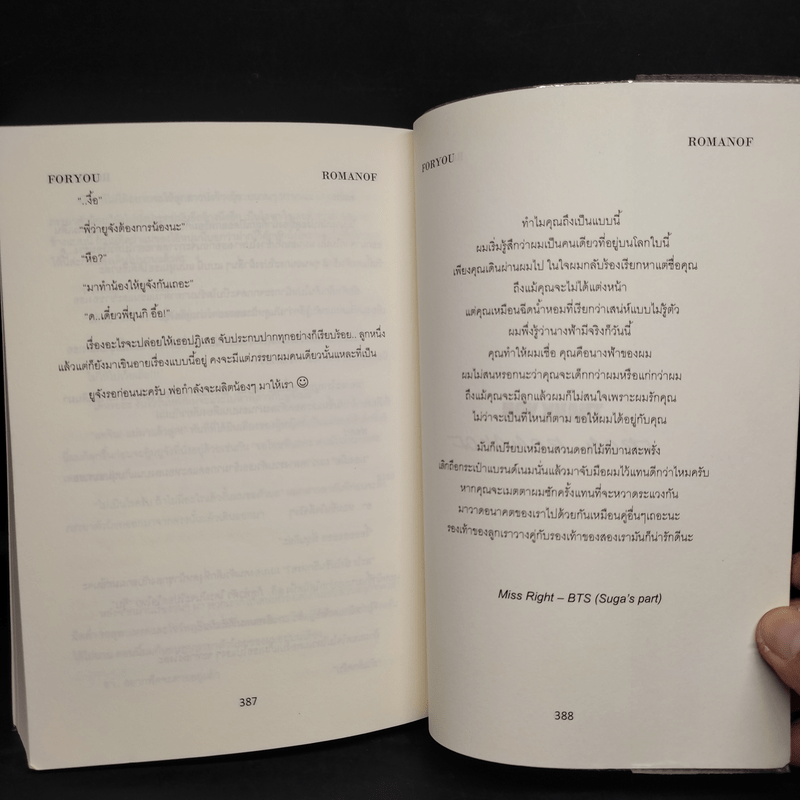 FORYOU ROMANOF
“..งื้อ”
“พี่ว่ายูจังต้องการน้องนะ”
“หือ?”
“มาทำน้องให้ยูจังกันเถอะ”
“ด..เดี๋ยวพี่ยุนกิ อื้อ!”
เรื่องอะไรจะปล่อยให้เธอปฏิเสธ จับประกบปากทุกอย่างก็เรียบร้อย.. ลูกหนึ่ง
แล้วแต่ก็ยังมาเขินอายเรื่องแบบนี้อยู่ คงจะมีแต่ภรรยาผมคนเดียวนั้นแหละที่เป็น
ยูจังรอก่อนนะครับ พ่อกำลังจะผลิตน้องๆ มาให้เรา ☺
387
FORYOU ROMANOF
ทำไมคุณถึงเป็นแบบนี้
ผมเริ่มรู้สึกว่าผมเป็นคนเดียวที่อยู่บนโลกใบนี้
เพียงคุณเดินผ่านผมไป ในใจผมกลับร้องเรียกหาแต่ชื่อคุณ
ถึงแม้คุณจะไม่ได้แต่งหน้า
แต่คุณเหมือนฉีดน้ำหอมที่เรียกว่าเสน่ห์แบบไม่รู้ตัว
ผมพึ่งรู้ว่านางฟ้ามีจริงก็วันนี้
คุณทำให้ผมเชื่อ คุณคือนางฟ้าของผม
ผมไม่สนหรอกนะว่าคุณจะเด็กกว่าผมหรือแก่กว่าผม
ถึงแม้คุณจะมีลูกแล้วผมก็ไม่สนใจเพราะผมรักคุณ
ไม่ว่าจะเป็นที่ไหนก็ตาม ขอให้ผมได้อยู่กับคุณ
มันก็เปรียบเหมือนสวนดอกไม้ที่บานสะพรั่ง
เลิกถือกระเป๋าแบรนด์เนมนั่นแล้วมาจับมือผมไว้แทนดีกว่าไหมครับ
หากคุณจะเมตตาผมซักครั้งแทนที่จะหวาดระแวงกัน
มาวาดอนาคตของเราไปด้วยกันเหมือนคู่อื่นๆเถอะนะ
รองเท้าของลูกเราวางคู่กับรองเท้าของสองเรามันก็น่ารักดีนะ
Miss Right – BTS (Suga's part)
388